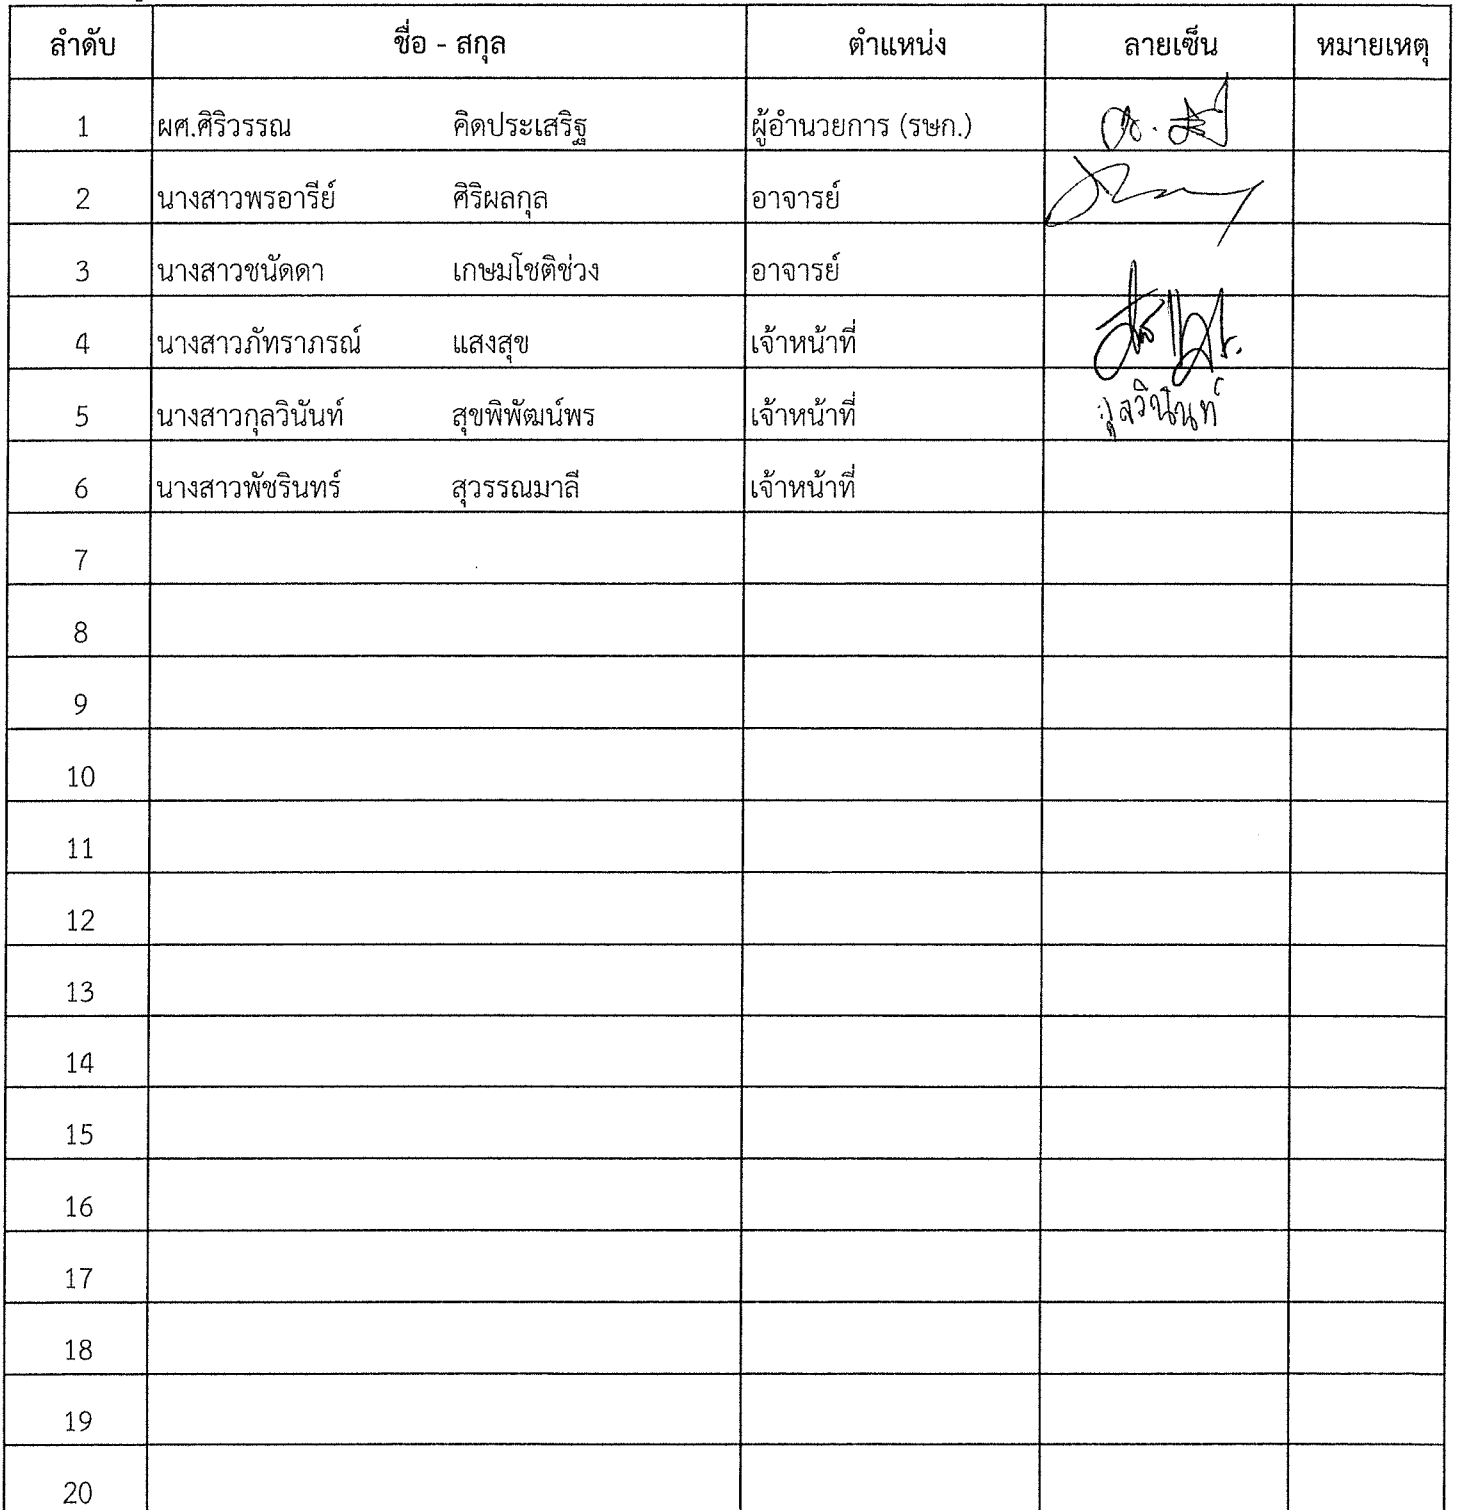 ลำดับ ชื่อ - สกุล ตำแหน่ง ลายเซ็น หมายเหตุ
1 ผศ.ศิริวรรณ คิดประเสริฐ ผู้อำนวยการ (รษก.)
2 นางสาวพรอารีย์ ศิริผลกุล อาจารย์
3 นางสาวชนัดดา เกษมโชติช่วง อาจารย์
4 นางสาวภัทราภรณ์ แสงสุข เจ้าหน้าที่
5 นางสาวกุลวินันท์ สุขพิพัฒน์พร เจ้าหน้าที่ กุลวินันท์
6 นางสาวพัชรินทร์ สุวรรณมาลี เจ้าหน้าที่
7
8
9
10
11
12
13
14
15
16
17
18
19
20